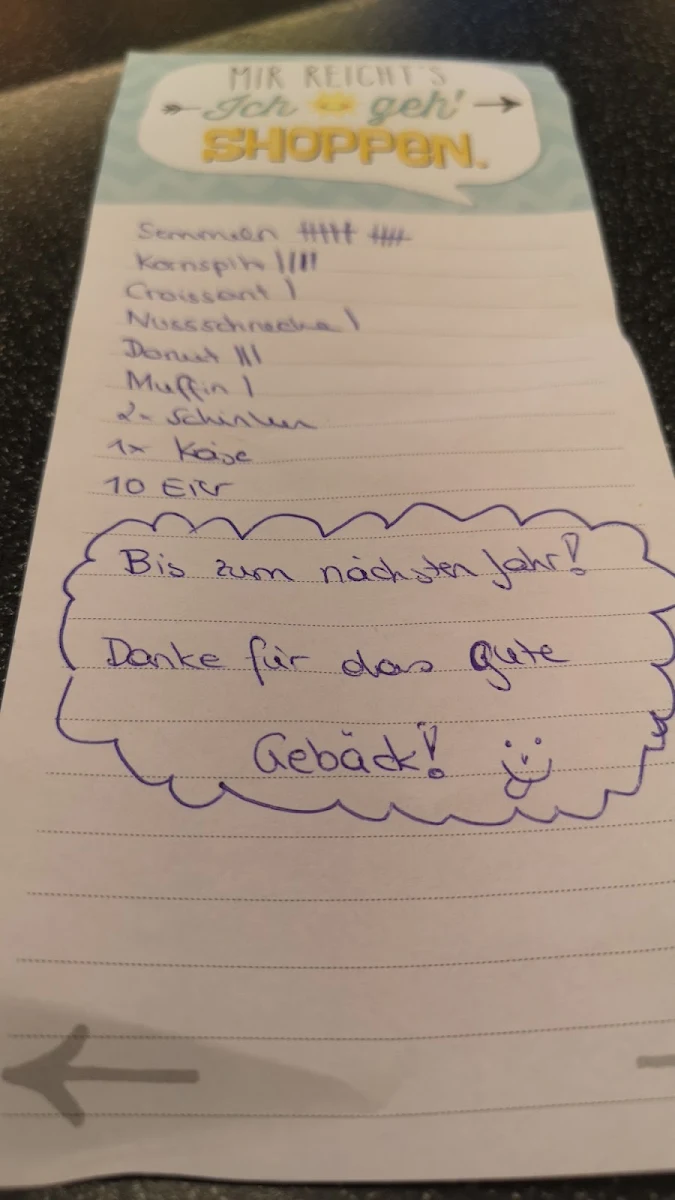 MIR REICHT'S
Ich geh'
SHOPPEN.
Semmeln
Kornspitz ||||
Croissant |
Nussschnecke |
Donut |||
Muffin |
2x Schinken
1x Käse
10 Eier
Bis zum nächsten Jahr!
Danke für das gute
Gebäck!